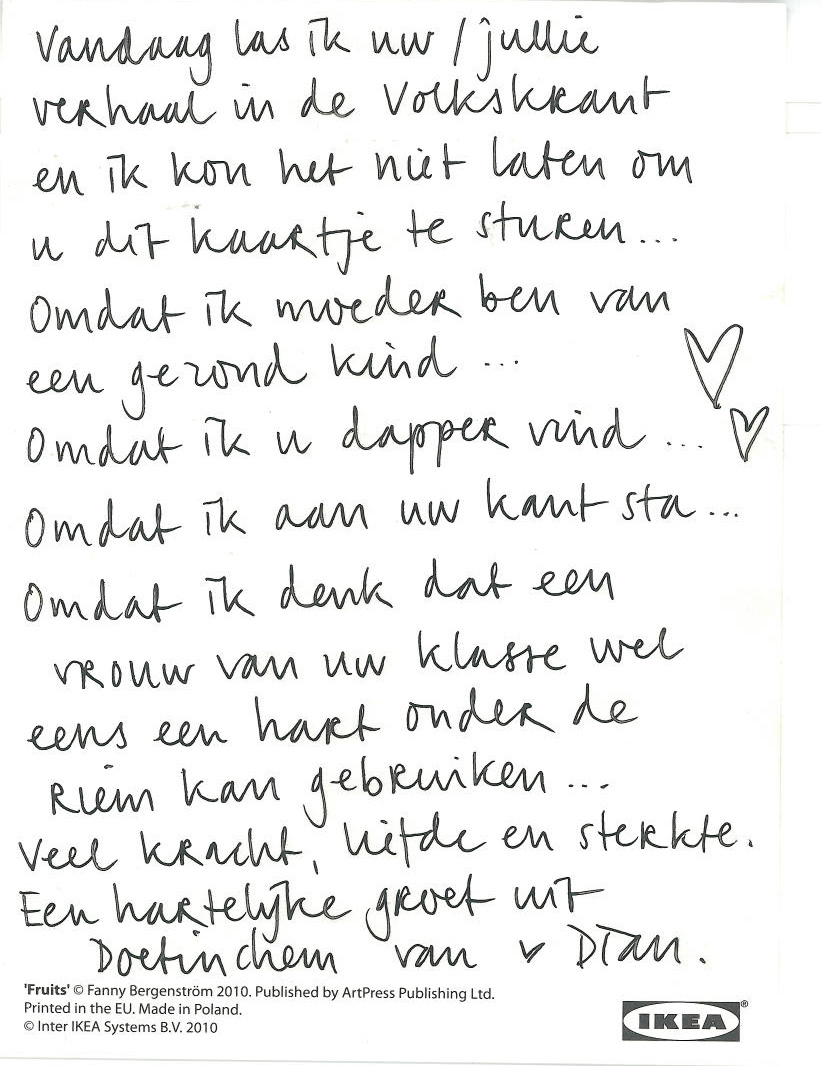 Vandaag las ik uw / jullie
verhaal in de Volkskrant
en ik kon het niet laten om
u dit kaartje te sturen...
Omdat ik moeder ben van
een gezond kind ...
Omdat ik u dapper vind ...
Omdat ik aan uw kant sta ...
Omdat ik denk dat een
vrouw van uw klasse wel
eens een hart onder de
Riem kan gebruiken ...
Veel kracht, liefde en sterkte.
Een hartelijke groet uit
Doetinchem van Dian.
'Fruits' © Fanny Bergenström 2010. Published by ArtPress Publishing Ltd.
Printed in the EU. Made in Poland.
© Inter IKEA Systems B.V. 2010
IKEA®